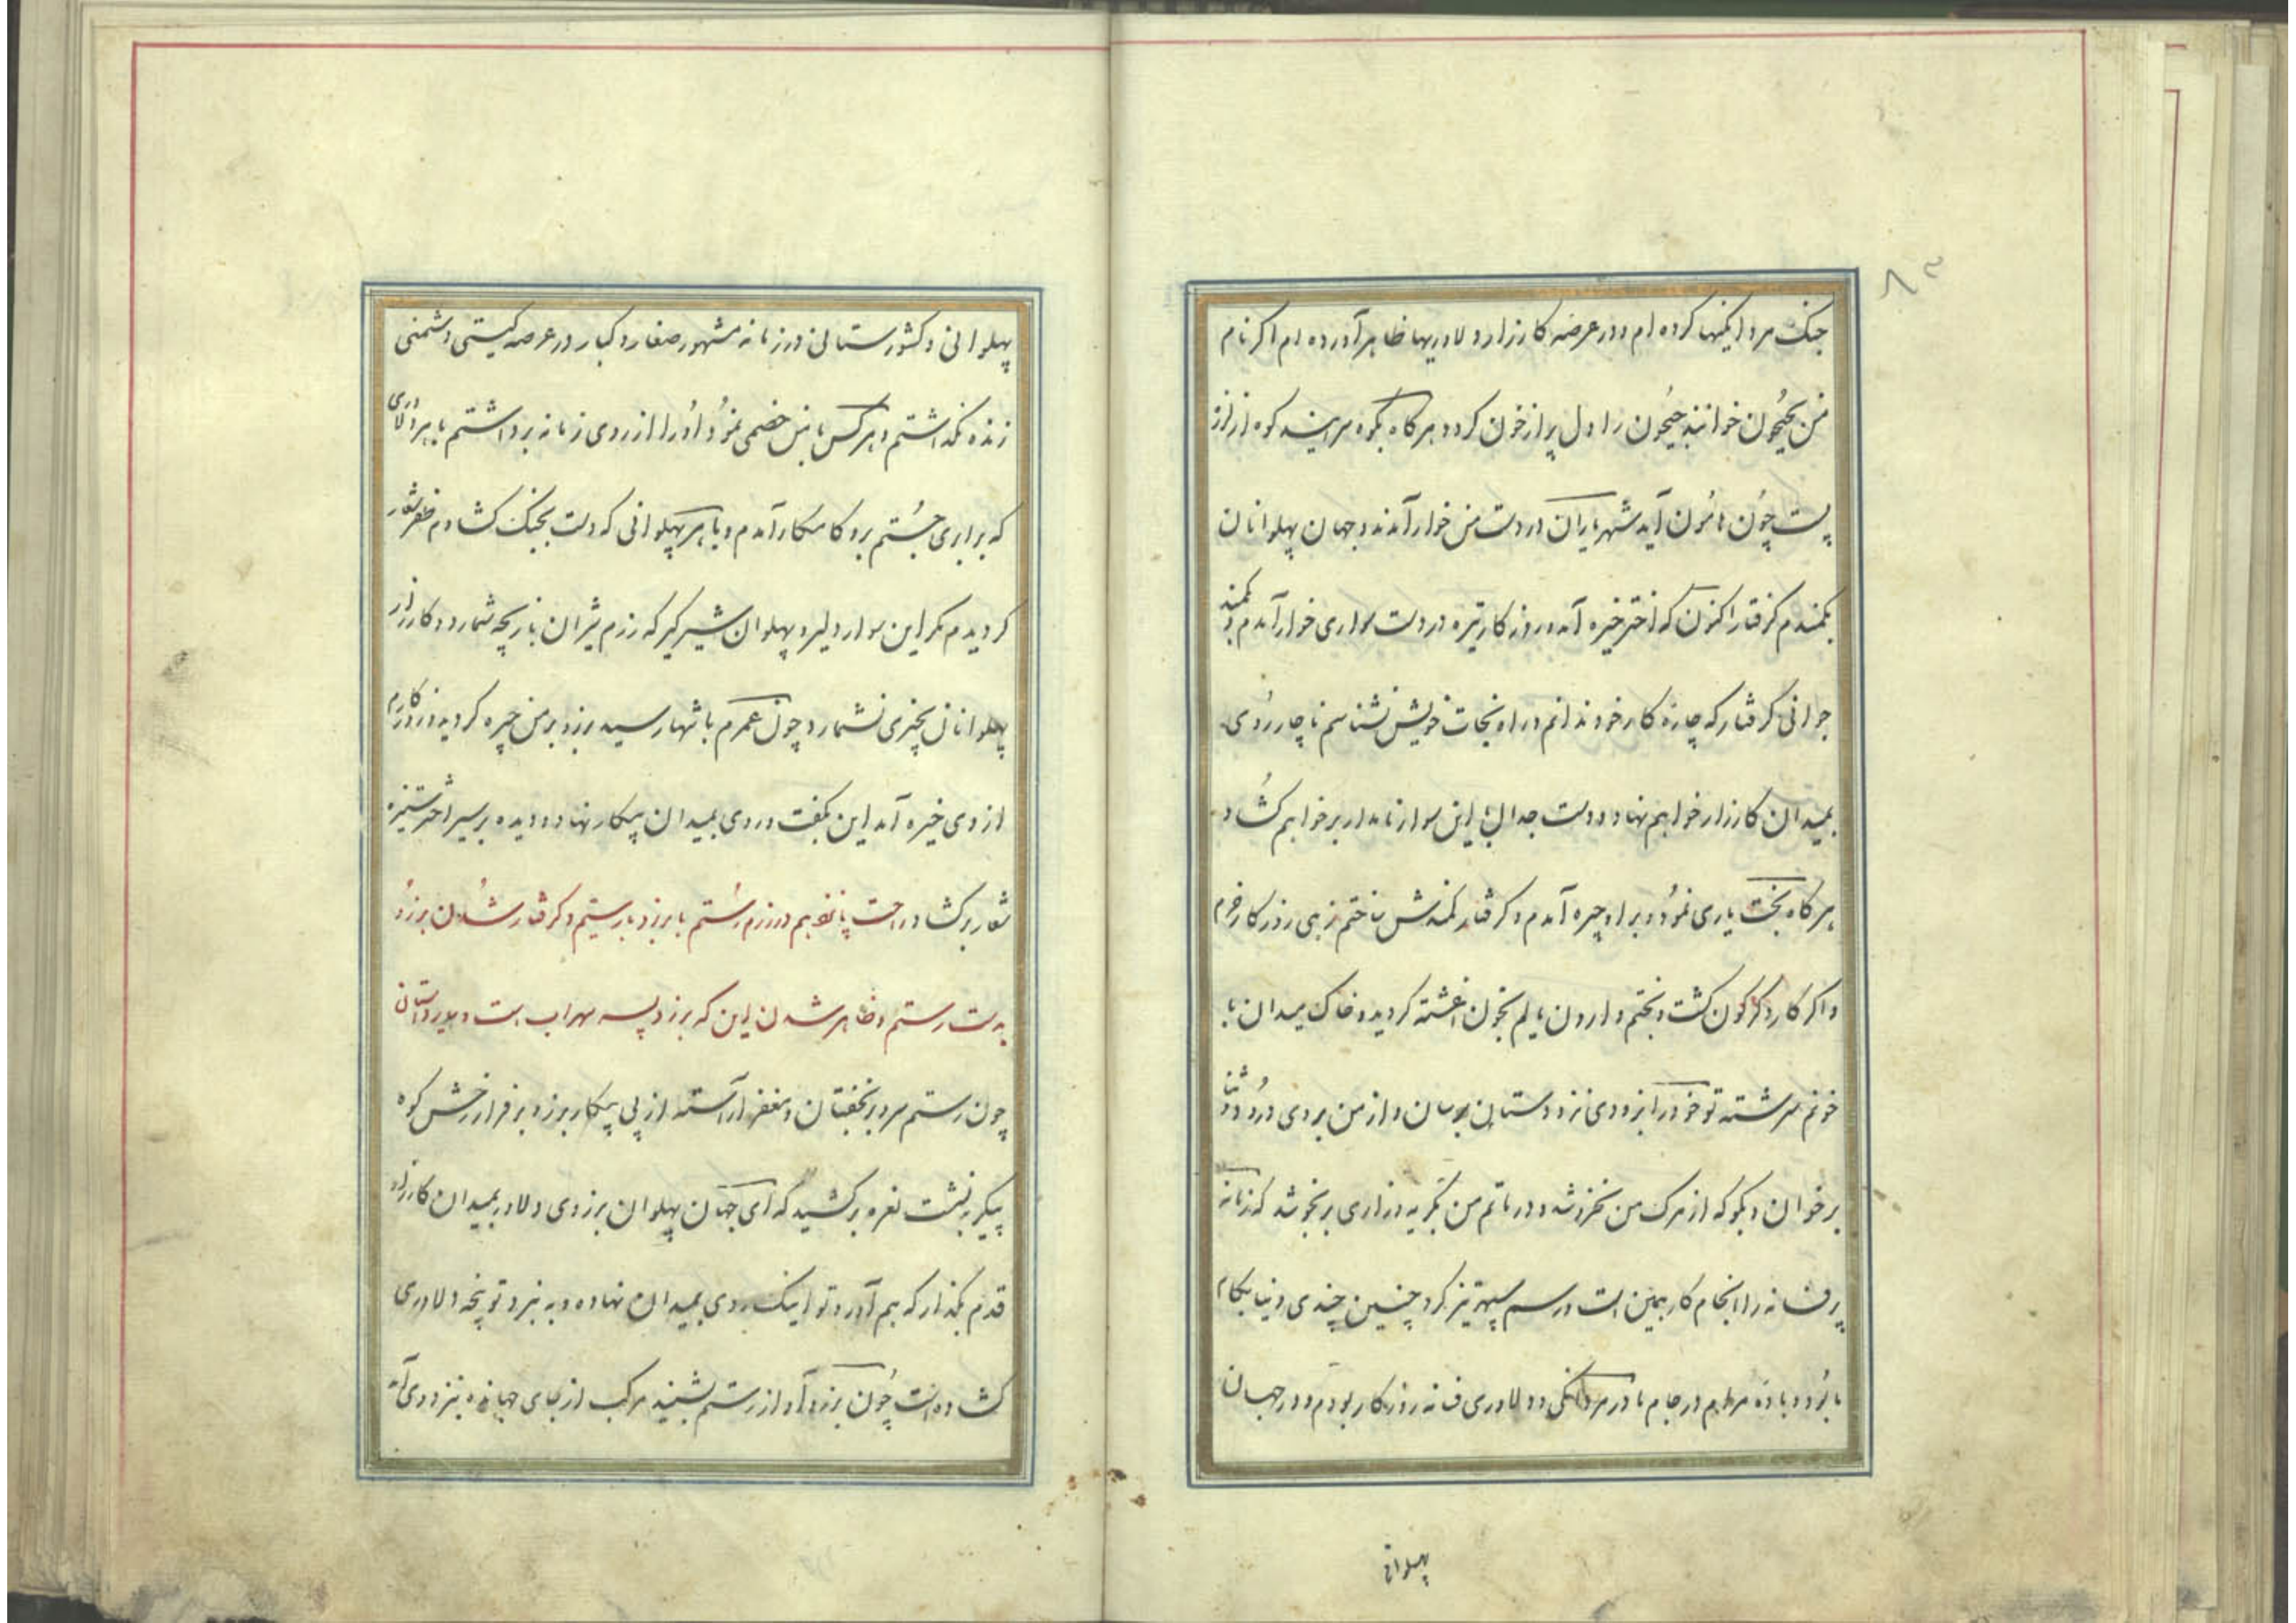 ۸۳
جنک مردانکیها کرده ام و در عرصه کارزار دلاوریها ظاهر آورده ام اکر نام
من بجیحون خوانند جیحون را دل پر از خون کردد و هر کاه بکوه سرایند کوه از راز
پست چون هامون آید شهریاران در دست من خوار آمدند و جهان پهلوانان
بکمندم کرفتار اکنون که اختر خیره آمد و روز کار تیره در دست سواری خوار آمدم و بکمند
جوانی کرفتار که چاره کار خود ندانم و راه نجات خویش نشناسم ناچار روی
بمیدان کارزار خواهم نهاد و دست جدال باین سوار نامدار بر خواهم کشاد
هر کاه بخت یاری نمود و بر او چیره آمدم و کرفتار کمندش ساختم زهی روز کار خرم
و اکر کار دکرکون کشت و بختم وارون یالم بخون اغشته کردید و خاک میدان با
خونم سرشته تو خود را بزودی نزد دستان برسان و از من بر وی درود و ثنا
بر خوان و بکو که از مرک من نخروشد و در ماتم من بکریه و زاری بر نجوشد که زمانه
پر فسانه را انجام کار همین است و رسم سپهر تیز کرد چنین چندی دنیا بکام
ما بود و باده مرام در جام ما در مردانکی و دلاوری فسانه روز کار بودم و در جهان
پهلوانی
پهلوانی و کشور ستانی در زمانه مشهور صغار و کبار در عرصه کیتی دشمنی
زنده نکذاشتم و هر کس با من خصمی نمود او را از روی زمانه برداشتم با هر دلاوری
که برابری جستم بر و کامکار آمدم و با هر پهلوانی که دست بجنک کشادم ظفر شعار
کردیدم مکر این سوار دلیر و پهلوان شیر کیر که رزم شیران بازیچه شمارد و کارزار
پهلوانان بچیزی نشمارد چون عمرم باشها رسید برزو بر من چیره کردید و روز کارم
از وی خیره آمد این بکفت و روی بمیدان پیکار نهاد و دیده بر سیر اختر ستیزه
شعار بر کشاد راحت پانزدهم در رزم رستم با برزو بار سیم و کرفتار شدن برزو
بدست رستم و ظاهر شدن این که برزو پسر سهراب است و
چون رستم سر و بر بخفتان و مغفر آراسته از پی پیکار برزو بر فراز رخش کوه
پیکر بنشست نعره بر کشید که ای جهان پهلوان برزوی دلاور بمیدان کارزار
قدم بکذار که هم آورد تو اینک روی بمیدان نهاده و به نبرد تو پنجه دلاوری
کشاده است چون برزو آواز رستم بشنید مرکب از جای جهانده بنزد وی آمد